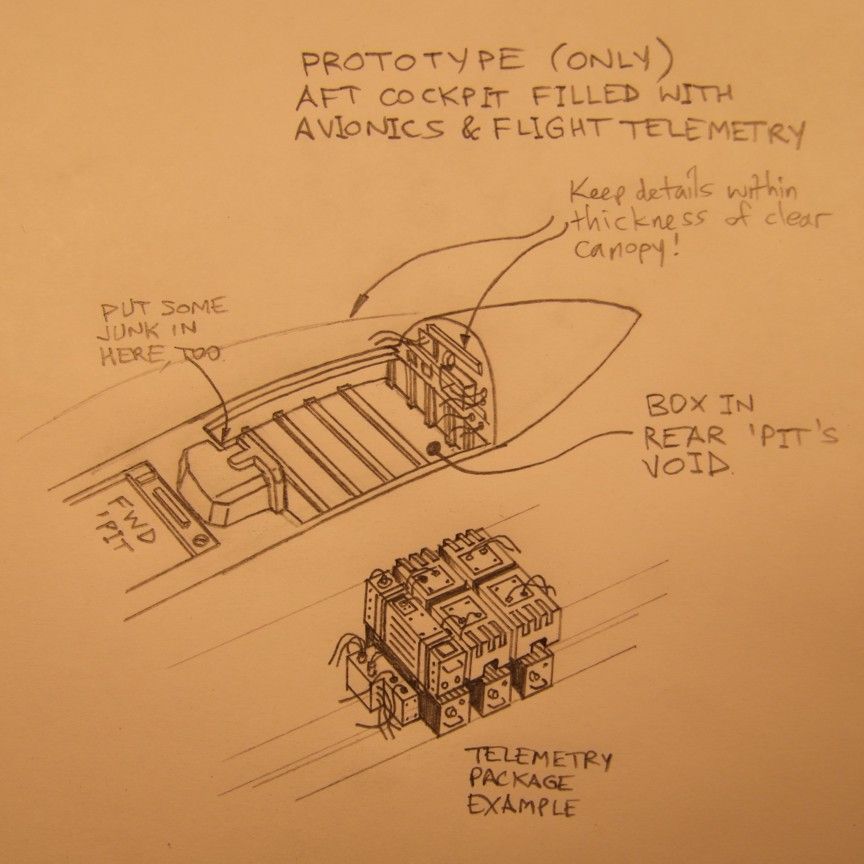 PROTOTYPE (ONLY)
AFT COCKPIT FILLED WITH
AVIONICS & FLIGHT TELEMETRY
Keep details within
thickness of clear
canopy!
PUT SOME
JUNK IN
HERE TOO.
BOX IN
REAR 'PIT'S
VOID.
FWD
'PIT
TELEMETRY
PACKAGE
EXAMPLE